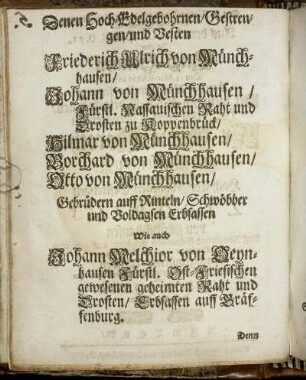 Denen Hoch-Edelgebohrnen/Gestren-
gen/und Vesten
Friederich Ulrich von Münch-
hausen/
Johann von Münchhausen/
Fürstl. Nassauischen Raht und
Drosten zu Koppenbrück/
Hilmar von Münchhausen/
Borchard von Münchhausen/
Otto von Münchhausen/
Gebrüdern auff Rinteln/Schwöbber
und Voldagsen Erbsassen
Wie auch
Johann Melchior von Oeyn-
hausen Fürstl. Ost-Friesischen
gewesenen geheimten Raht und
Drosten/Erbsassen auff Gräf-
fenburg.
Denn